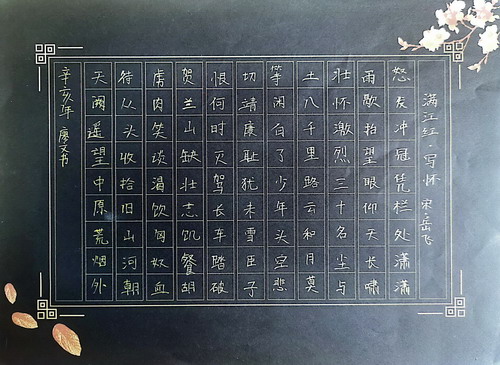 满江红·写怀 宋·岳飞
怒发冲冠凭栏处潇潇
雨歇抬望眼仰天长啸
壮怀激烈三十名尘与
土八千里路云和月莫
等闲白了少年头空悲
切靖康耻犹未雪臣子
恨何时灭驾长车踏破
贺兰山缺壮志饥餐胡
虏肉笑谈渴饮匈奴血
待从头收拾旧山河朝
天阙遥望中原荒烟外
辛亥年 廖文书